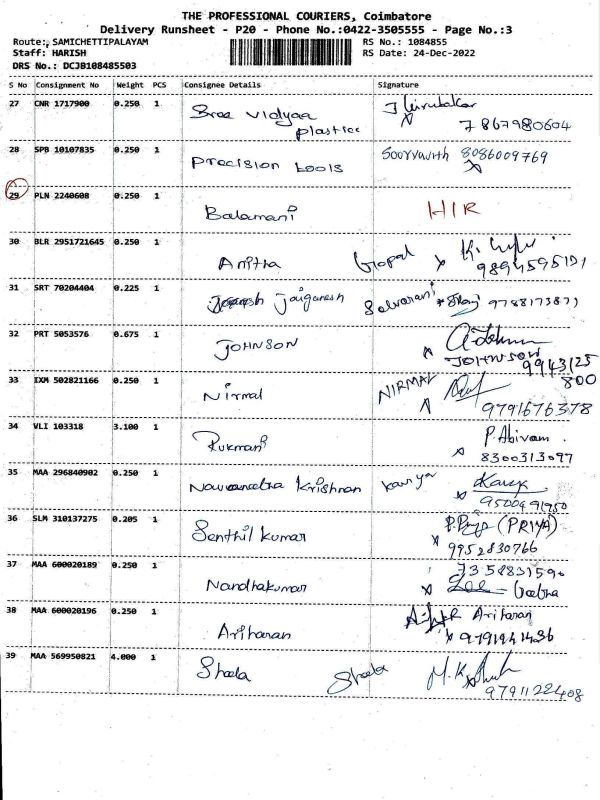 THE PROFESSIONAL COURIERS, Coimbatore
Delivery Runsheet - P20 - Phone No.:0422-3505555 - Page No.:3
Route: SAMICHETTIPALAYAM RS No.: 1084855
Staff: HARISH RS Date: 24-Dec-2022
DRS No.: DCJB108485503
S No Consignment No Weight PCS Consignee Details Signature
27 CNR 1717900 0.250 1 Sree vidyaa
plastice 7867980604
28 SPB 10107835 0.250 1 Precision tools 8086009769
29 PLN 2240608 0.250 1 Balamani HIR
30 BLR 2951721645 0.250 1 Anitha Gopal
31 SRT 70204404 0.225 1 Jaiganesh Selvarani 9788173871
32 PRT 5053576 0.675 1 JOHNSON
JOHNSON 9943125
800
33 IXM 502821166 0.250 1 Nirmal NIRMAL
9791676378
34 VLI 103318 3.100 1 Rukmani P. Abivam.
8300313097
35 MAA 296840902 0.250 1 Krishnan Kavya
9500491750
36 SLM 310137275 0.205 1 Senthil kumar (PRIYA)
9952830766
37 MAA 600020189 0.250 1 Nandhakumar 7358831590
Geetha
38 MAA 600020196 0.250 1 Ariharan Ariharan
9791941436
39 MAA 569950821 4.000 1 Sheela Sheela
9791122408